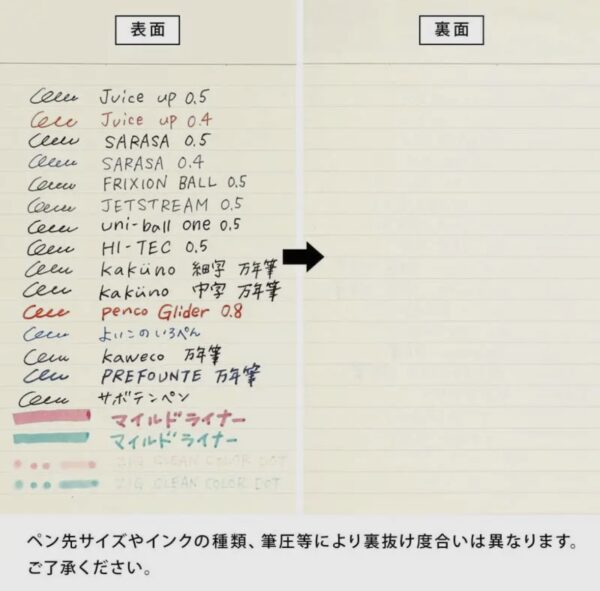 表面
裏面
Juice up 0.5
Juice up 0.4
SARASA 0.5
SARASA 0.4
FRIXION BALL 0.5
JETSTREAM 0.5
uni-ball one 0.5
HI-TEC 0.5
kaküno 細字 万年筆
kaküno 中字 万年筆
penco Glider 0.8
よいこのいろぺん
kaweco 万年筆
PREFOUNTE 万年筆
サボテンペン
マイルドライナー
マイルドライナー
ZIG CLEAN COLOR DOT
ZIG CLEAN COLOR DOT
ペン先サイズやインクの種類、筆圧等により裏抜け度合いは異なります。
ご了承ください。